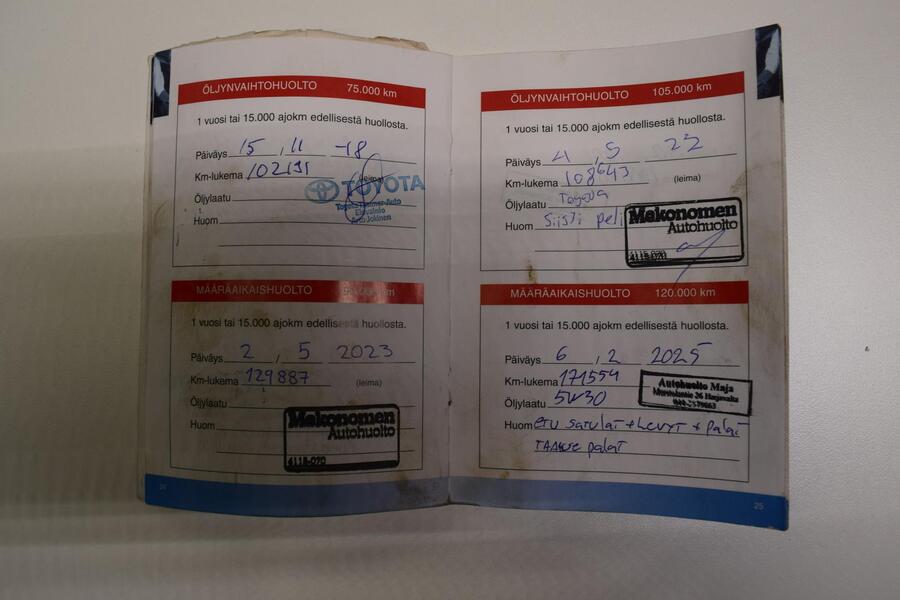 ÖLJYNVAIHTOHUOLTO 75.000 km
1 vuosi tai 15.000 ajokm edellisestä huollosta.
Päiväys 15 , 11 -18
Km-lukema 102191 (leima)
TOYOTA
Öljylaatu
Huom
MÄÄRÄAIKAISHUOLTO 90.000 km
1 vuosi tai 15.000 ajokm edellisestä huollosta.
Päiväys 2 , 5 2023
Km-lukema 129887 (leima)
Öljylaatu
Huom
Mekonomen
Autohuolto
24
ÖLJYNVAIHTOHUOLTO 105.000 km
1 vuosi tai 15.000 ajokm edellisestä huollosta.
Päiväys 4 , 5 22
Km-lukema 108643 (leima)
Öljylaatu Toyota
Huom siisti peli
Mekonomen
Autohuolto
MÄÄRÄAIKAISHUOLTO 120.000 km
1 vuosi tai 15.000 ajokm edellisestä huollosta.
Päiväys 6 , 2 2025
Km-lukema 171554
Autohuolto Maja
Öljylaatu 5W30
Huom ETU satulat + Levyt + palat
TAAkse palat
25